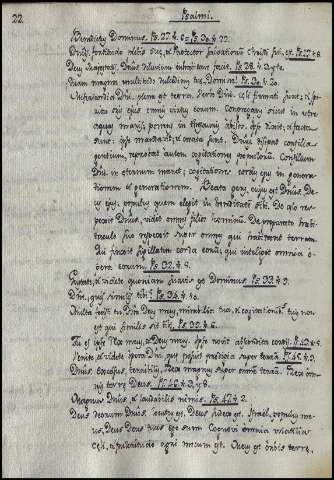 22
Psalmi.
Benedictus Dominus. Ps. 27. v. 6. Ps. 30. v. 22.
Dns fortitudo plebis suae, et Protector salvationum Christi sui, est. Ps. 27. v. 8.
Deus Majestatis, Dnus diluvium inhabitare facit. Ps. 28.
Quam magna multitudo dulcedinis tuae, Domine! Ps. 30. v. 20.
Misericordia Dni plena est terra. Verbo Dni caeli firmati sunt, et
oris ejus omnis virtus eorum. Congregans sicut in utre
aquas maris, ponens in thesauris abyssos. Ipse dixit, et facta
sunt: ipse mandavit, et creata sunt. Dnus dissipat consilia
gentium, reprobat autem cogitationes populorum. Consilium
Dni in aeternum manet, cogitationes cordis ejus in genera-
tionem et generationem. Beata gens, cujus est Dnus, De-
us ejus, populus quem elegit in haereditatem sibi. De caelo res-
pexit Dnus, vidit omnes filios hominum. De praeparato habi-
taculo suo respexit super omnes qui habitant terram.
Qui finxit sigillatim corda eorum, qui intelligit omnia o-
pera eorum. Ps. 32. v. 5.
Gustate, et videte quoniam suavis est Dominus. Ps. 33. v. 9.
Dne, quis similis tibi? Ps. 34. v. 10.
Multa fecisti tu, Dne Deus meus, mirabilia tua, et cogitationibus tuis non
est qui similis sit tibi. Ps. 39. v. 6.
Tu es ipse Rex meus, et Deus meus, qui
Venite et videte opera Dni, quae posuit prodigia super terram. Ps. 45. v. 9.
Dnus excelsus, terribilis, Rex magnus super omnem terram. Rex om-
nis terrae Deus. Ps. 46. v. 3, et 8.
Magnus Dnus, et laudabilis nimis. Ps. 47. v. 2.
Deus Deorum Dnus locutus est, Deus Israel, populus me-
us, Deus Deus tuus ego sum. Cognovi omnia volatilia
caeli, et pulchritudo agri mecum est. Meus est orbis terrae,